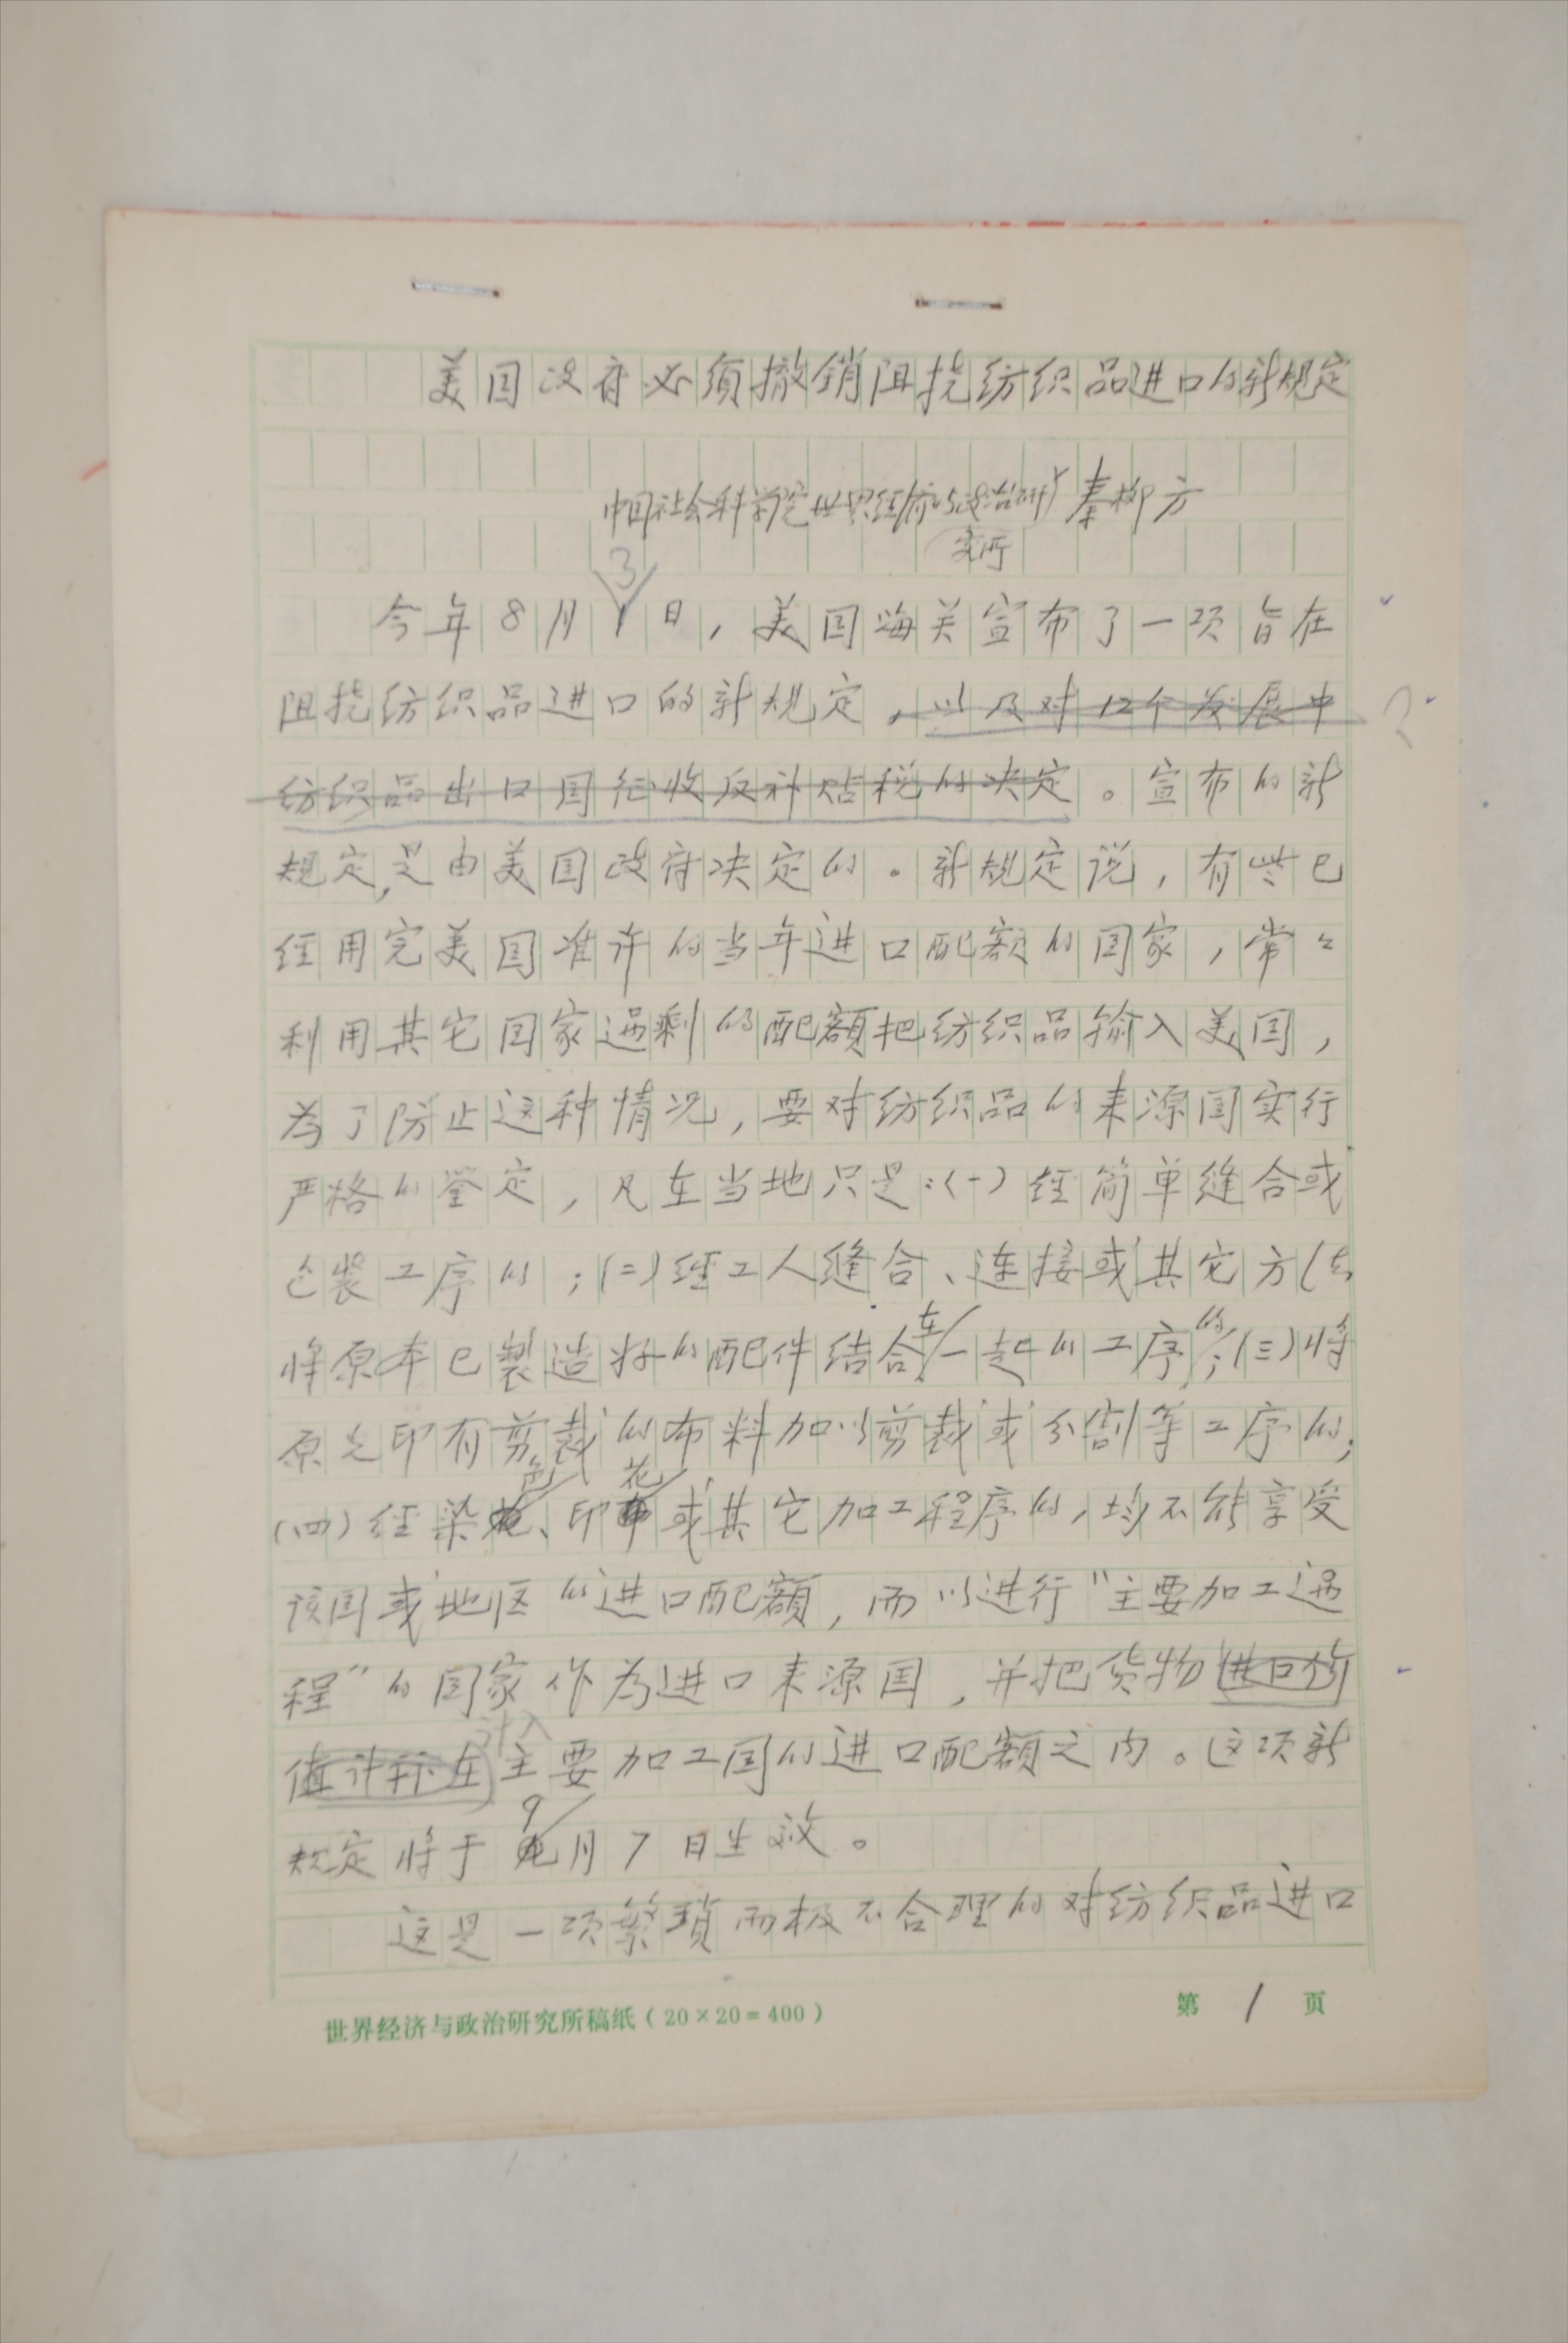 美国政府必须撤销阻挠纺织品进口的新规定
中国社会科学院世界经济与政治研究所 秦柳方
今年8月3日,美国海关宣布了一项旨在
阻挠纺织品进口的新规定,以及对12个发展中
纺织品出口国征收反补贴税的决定。宣布的新
规定,是由美国政府决定的。新规定说,有些已
经用完美国准许的当年进口配额的国家,常々
利用其它国家过剩的配额把纺织品输入美国,
为了防止这种情况,要对纺织品的来源国实行
严格的鉴定,凡在当地只是:(一)经简单缝合或
包装工序的;(二)经工人缝合、连接或其它方法
将原本已製造好的配件结合在一起的工序的;(三)将
原先印有剪裁的布料加以剪裁或分割等工序的;
(四)经染色、印花或其它加工程序的,均不能享受
该国或地区的进口配额,而以进行“主要加工过
程”的国家作为进口来源国,并把货物进口价
值计算在计入主要加工国的进口配额之内。这项新
规定将于9月7日生效。
这是一项繁琐而极不合理的对纺织品进口
世界经济与政治研究所稿纸(20×20=400)
第 1 页